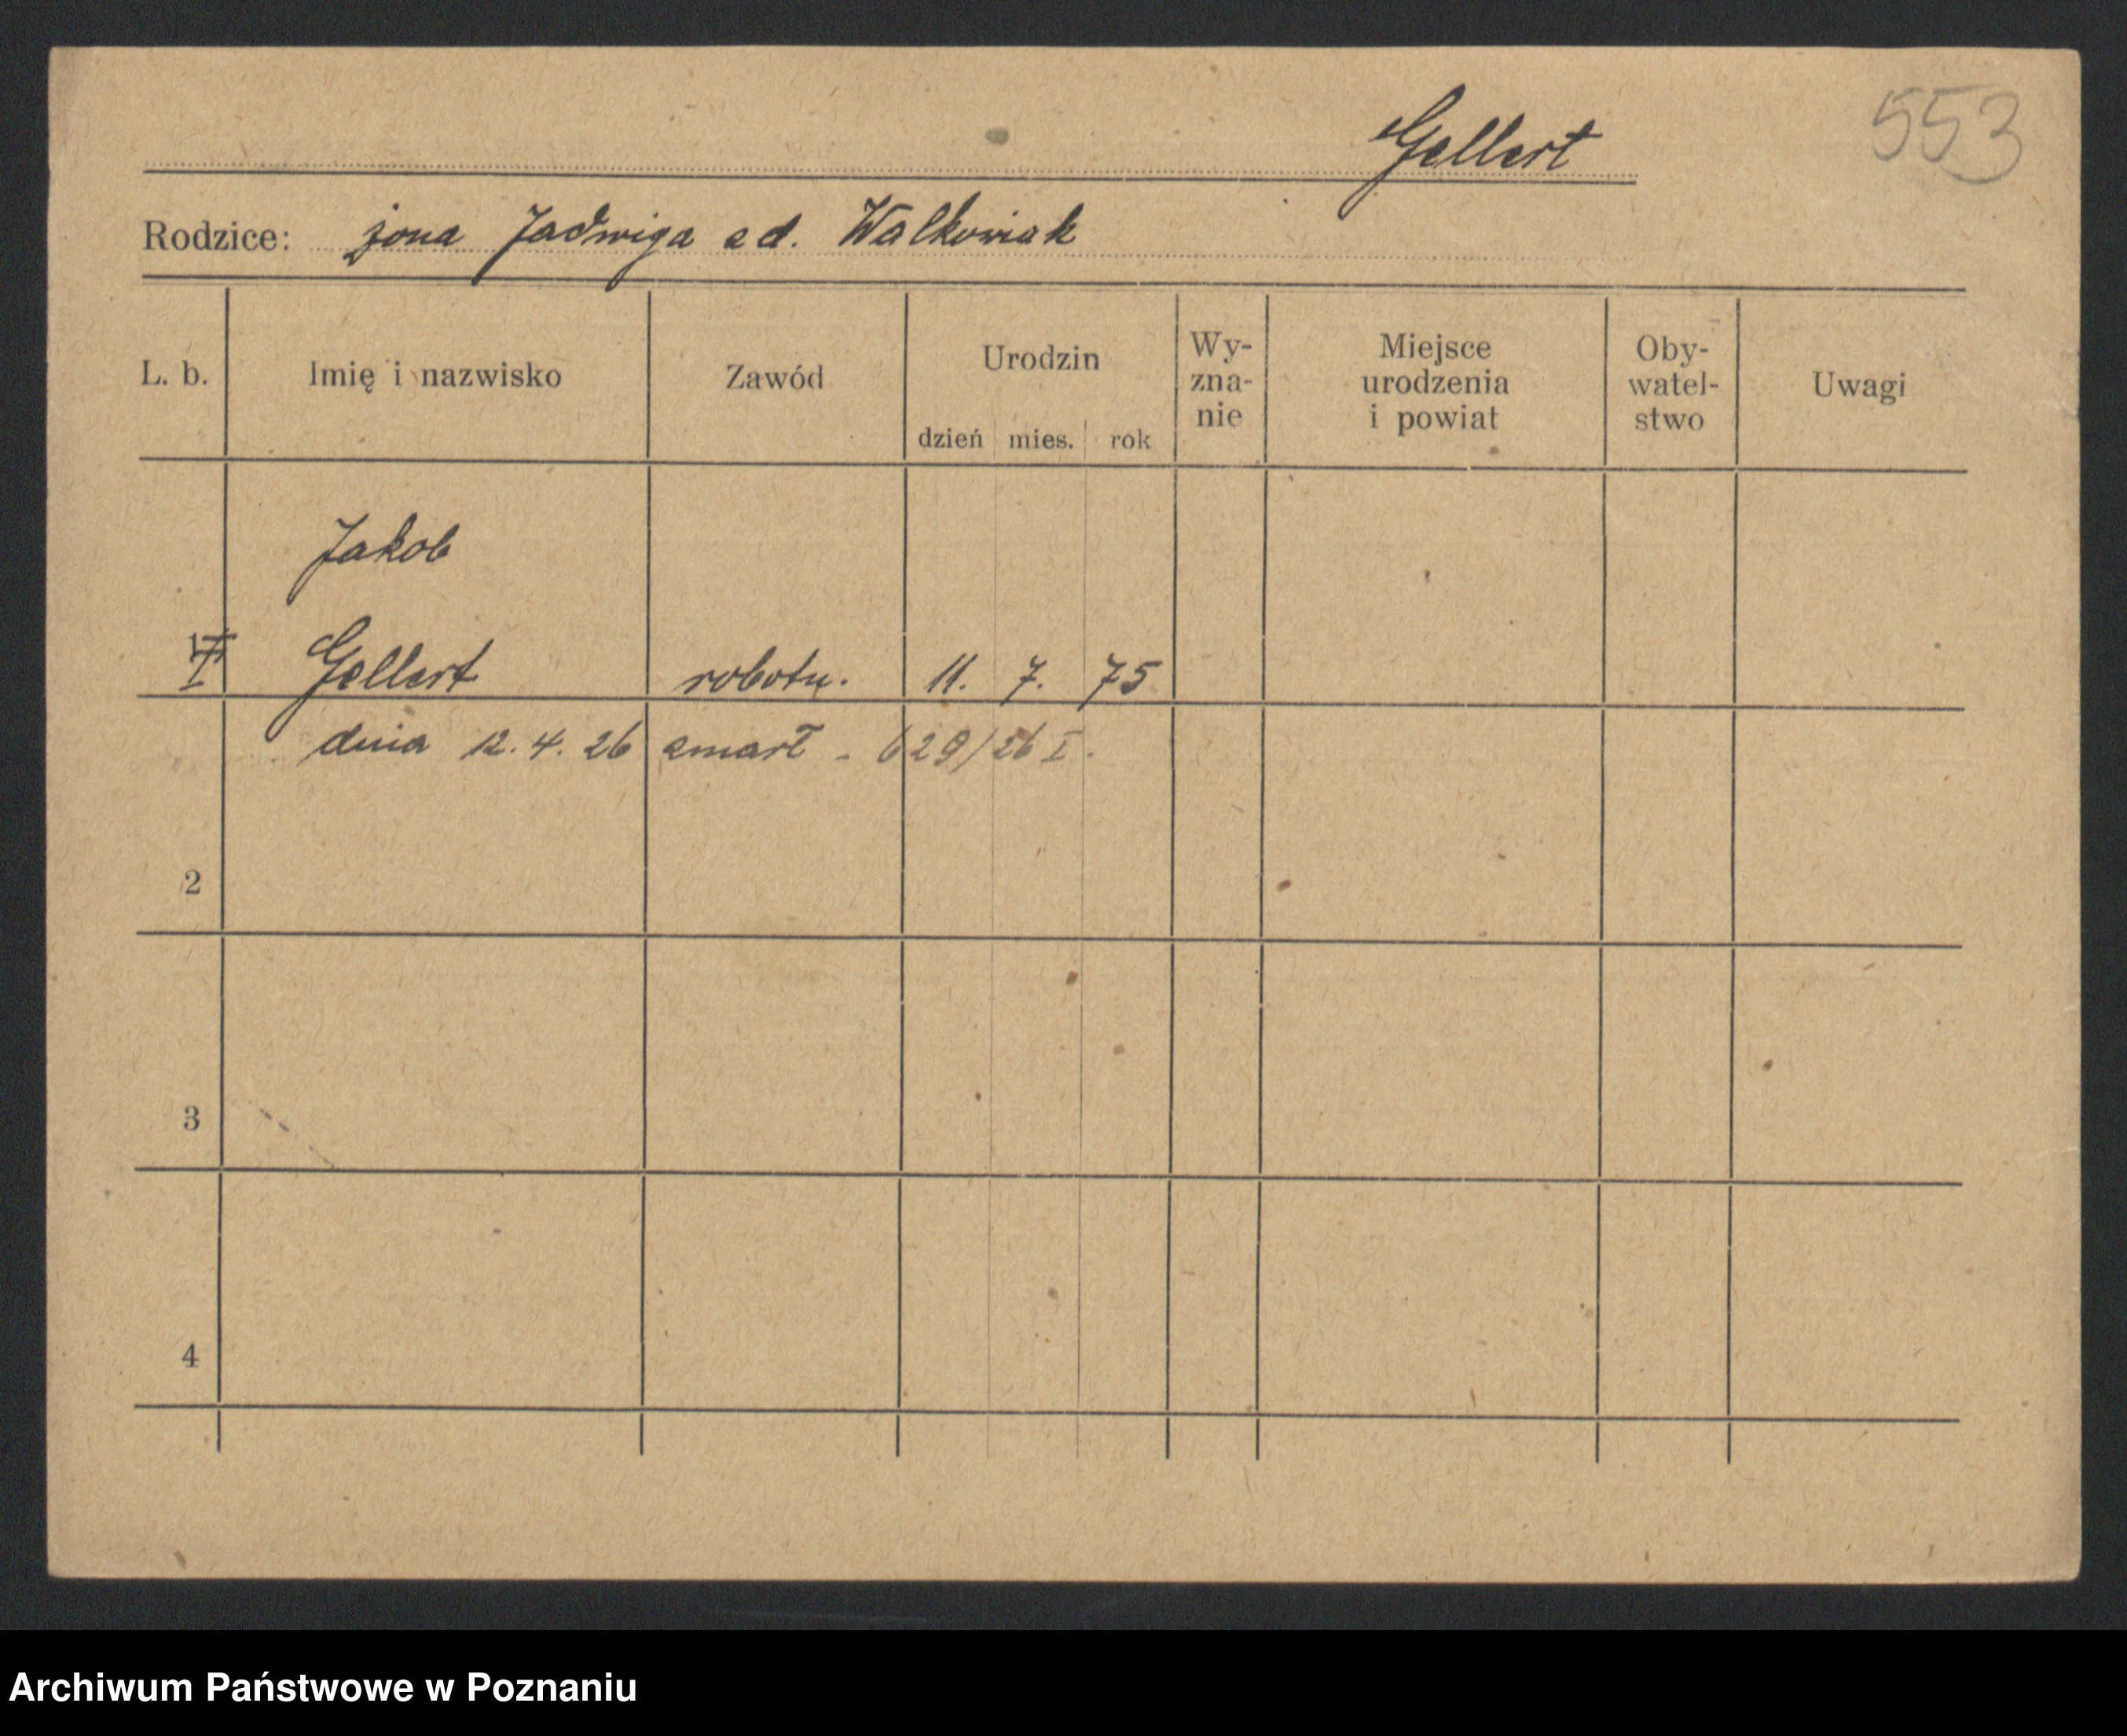 553
Gellert
Rodzice: żona Jadwiga zd. Walkowiak
L. b. Imię i nazwisko Zawód Urodzin dzień mies. rok Wy-zna-nie Miejsce urodzenia i powiat Oby-watel-stwo Uwagi
Jakob
Gellert robotn. 11. 7. 75
dnia 12. 4. 26 zmarł - 629/26 I.
2
3
4
Archiwum Państwowe w Poznaniu